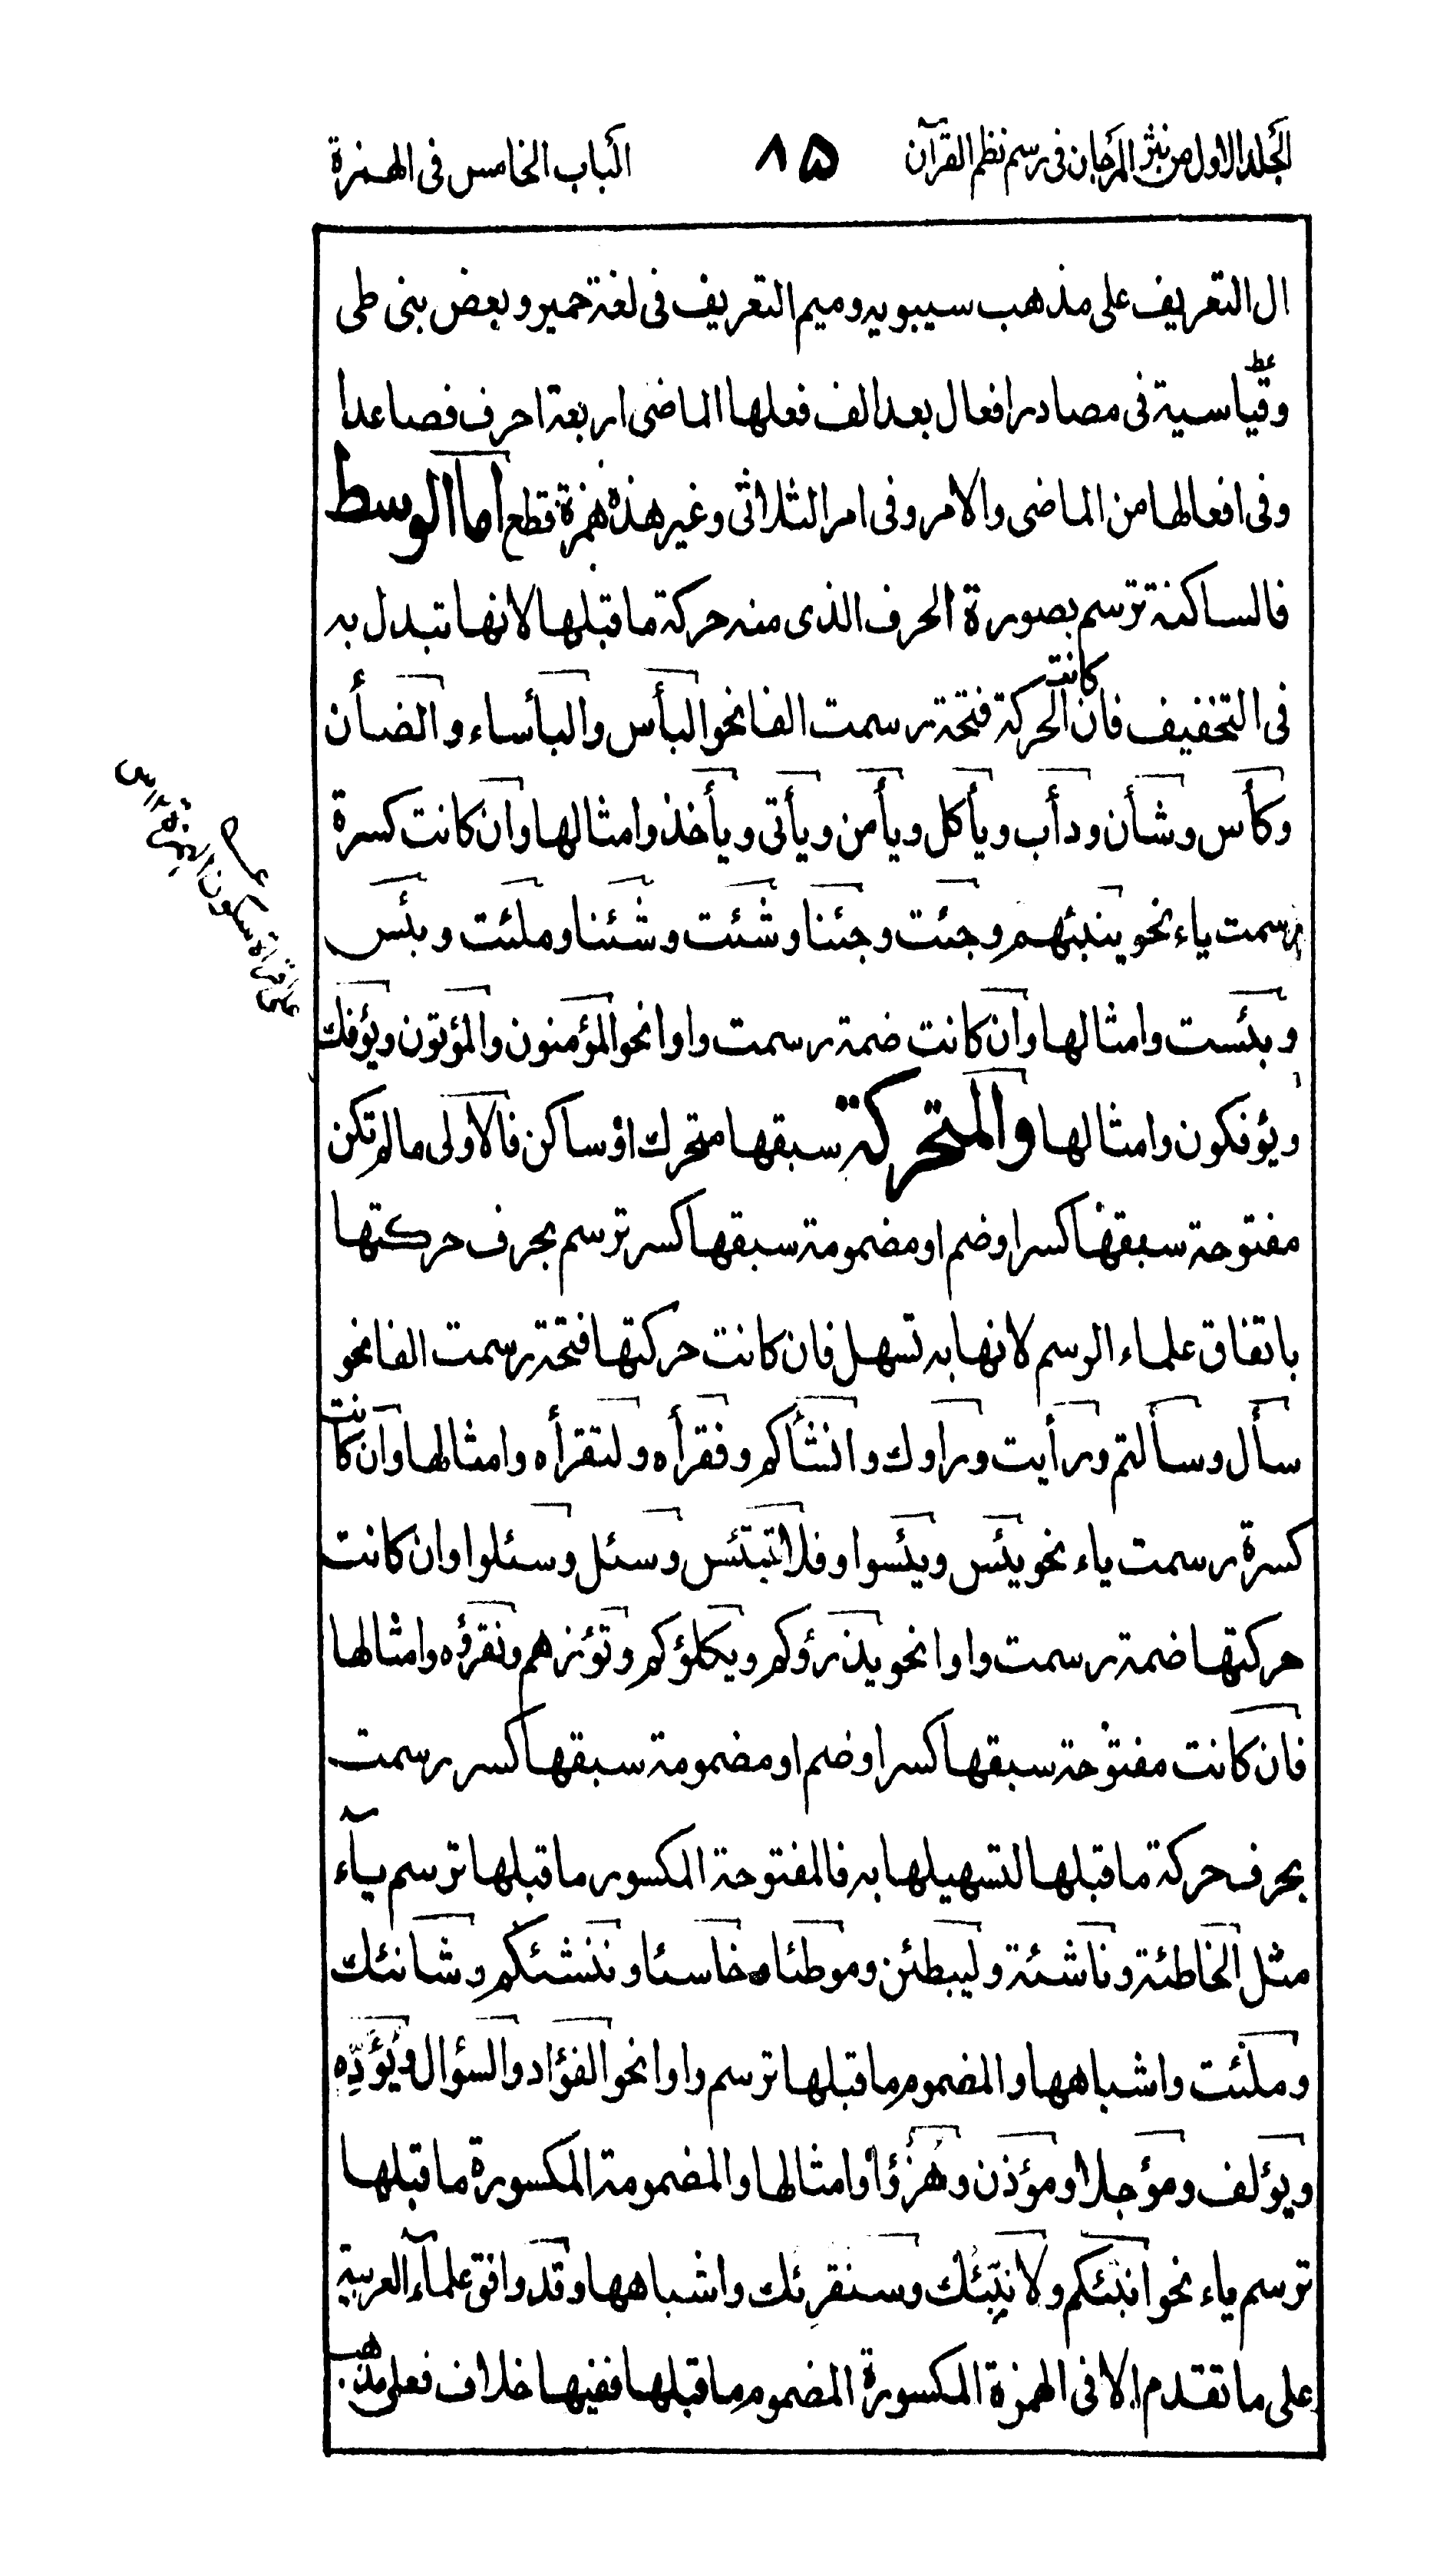 المجلد الاول من نثر المرجان فى رسم نظم القرآن
٨٥
الباب الخامس فى الهمزة
ال التعريف على مذهب سيبويه وميم التعريف فى لغة حمير وبعض بنى طى
وقياسية فى مصادر افعال بعد الف فعلها الماضى اربعة احرف فصاعدا
وفى افعالها من الماضى والامر وفى امر الثلاثى وغير هذه همزة قطع اما الوسط
فالساكنة ترسم بصورة الحرف الذى منه حركة ما قبلها لانها تبدل به
فى التخفيف فان كانت الحركة فتحة رسمت الفا نحو البأس والبأساء والضأن
وكأس وشأن ودأب ويأكل ويأمن ويأتى ويأخذ وامثالها وان كانت كسرة
رسمت ياء نحو ينبئهم وجئت وجئنا وشئت وشئنا وملئت وبئس
وبئست وامثالها وان كانت ضمة رسمت واوا نحو المؤمنون والمؤتون ويؤفك
ويؤفكون وامثالها والمتحركة سبقها متحرك اوساكن فالاولى ما لم تكن
مفتوحة سبقها كسر اوضم او مضمومة سبقها كسر ترسم بحرف حركتها
باتفاق علماء الرسم لانها به تسهل فان كانت حركتها فتحة رسمت الفا نحو
سأل وسألتم ورأيت وراوك وانشأكم وفقرأه ولتقرأه وامثالها وان كانت
كسرة رسمت ياء نحو يئس ويئسوا وفلا تبتئس وسئل وسئلوا وان كانت
حركتها ضمة رسمت واوا نحو يذرؤكم ويكلؤكم وتؤزهم ونقرؤه وامثالها
فان كانت مفتوحة سبقها كسر اوضم او مضمومة سبقها كسر رسمت
بحرف حركة ما قبلها لتسهيلها به فالمفتوحة المكسور ما قبلها ترسم يآء
مثل الخاطئة وناشئة وليبطئن وموطئا وخاسئا وننشئكم وشانئك
وملئت واشباهها والمضموم ما قبلها ترسم واوا نحو الفؤاد والسؤال ويُؤَدِّه
ويؤلف ومؤجلا ومؤذن وهُزُؤًا وامثالها والمضمومة المكسورة ما قبلها
ترسم ياء نحو انبئكم ولا ينبئك وسنقرئك واشباهها وقد وافق علمآء العربية
على ما تقدم الا فى الهمزة المكسورة المضموم ما قبلها ففيها خلاف فعلى مذهب